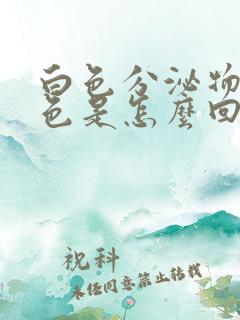 白色分泌物
色是怎麼回
祝科
未经同意禁止转载